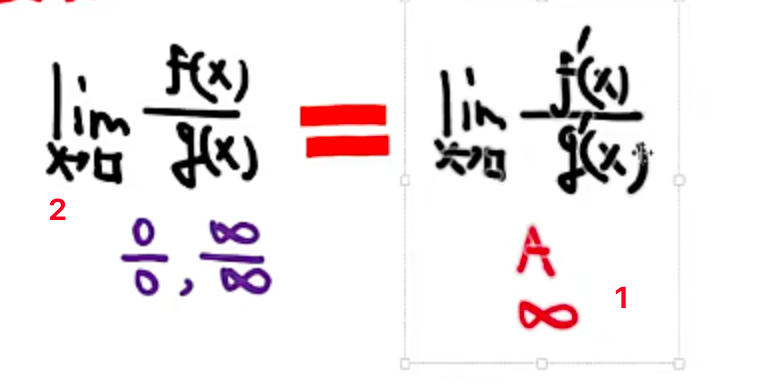 lim x→□ f(x)/g(x) = lim x→□ f′(x)/g′(x)
2
0/0 , ∞/∞
A
∞ 1